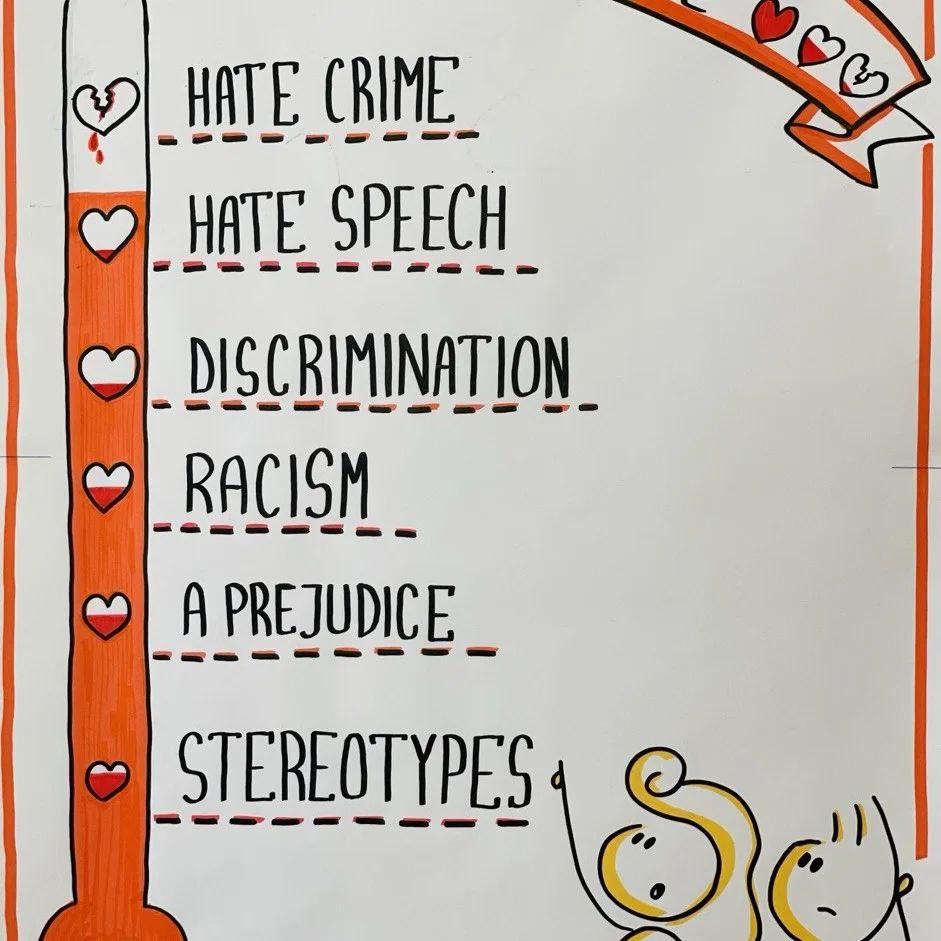 HATE CRIME
HATE SPEECH
DISCRIMINATION
RACISM
A PREJUDICE
STEREOTYPES